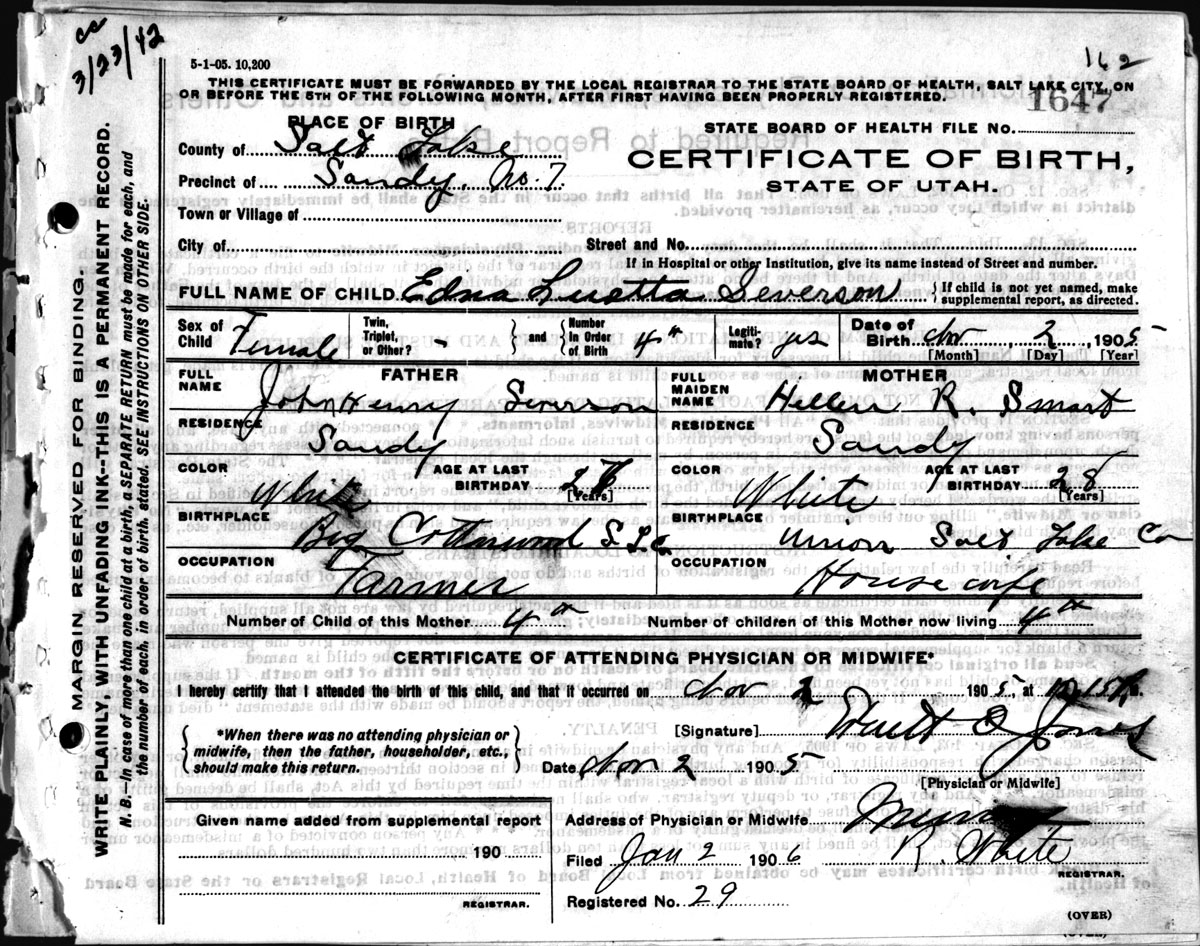 cs
3/23/42
162
5-1-05. 10,200
THIS CERTIFICATE MUST BE FORWARDED BY THE LOCAL REGISTRAR TO THE STATE BOARD OF HEALTH, SALT LAKE CITY, ON
OR BEFORE THE 5TH OF THE FOLLOWING MONTH, AFTER FIRST HAVING BEEN PROPERLY REGISTERED.
1647
PLACE OF BIRTH
STATE BOARD OF HEALTH FILE NO.
County of Salt Lake
CERTIFICATE OF BIRTH,
Precinct of Sandy, No. 7
STATE OF UTAH.
Town or Village of
City of
Street and No.
If in Hospital or other Institution, give its name instead of Street and number.
FULL NAME OF CHILD Edna Severson { If child is not yet named, make supplemental report, as directed.
Sex of Child Female Twin, Triplet, or Other? - } and { Number In Order of Birth 4th Legiti-mate? yes Date of Birth Nov 2, 1905
[Month] [Day] [Year]
FATHER
MOTHER
FULL NAME John Henry Severson
FULL MAIDEN NAME Hellen R. Smart
RESIDENCE Sandy
RESIDENCE Sandy
COLOR White AGE AT LAST BIRTHDAY [Years]
COLOR White AGE AT LAST BIRTHDAY 28 [Years]
BIRTHPLACE Big Cottonwood S. L. Co
BIRTHPLACE Union Salt Lake Co
OCCUPATION Farmer
OCCUPATION House wife
Number of Child of this Mother 4th
Number of children of this Mother now living 4th
CERTIFICATE OF ATTENDING PHYSICIAN OR MIDWIFE*
I hereby certify that I attended the birth of this child, and that it occurred on Nov 2 1905, at
*When there was no attending physician or midwife, then the father, householder, etc., should make this return.
[Signature] Jones
Date Nov 2 1905
[Physician or Midwife]
Given name added from supplemental report
Address of Physician or Midwife
190
Filed Jan 2 1906 R. White
REGISTRAR.
REGISTRAR.
Registered No. 29
(OVER)
MARGIN RESERVED FOR BINDING.
WRITE PLAINLY, WITH UNFADING INK--THIS IS A PERMANENT RECORD.
N. B.--In case of more than one child at a birth, a SEPARATE RETURN must be made for each, and
the number of each, in order of birth, stated. SEE INSTRUCTIONS ON OTHER SIDE.